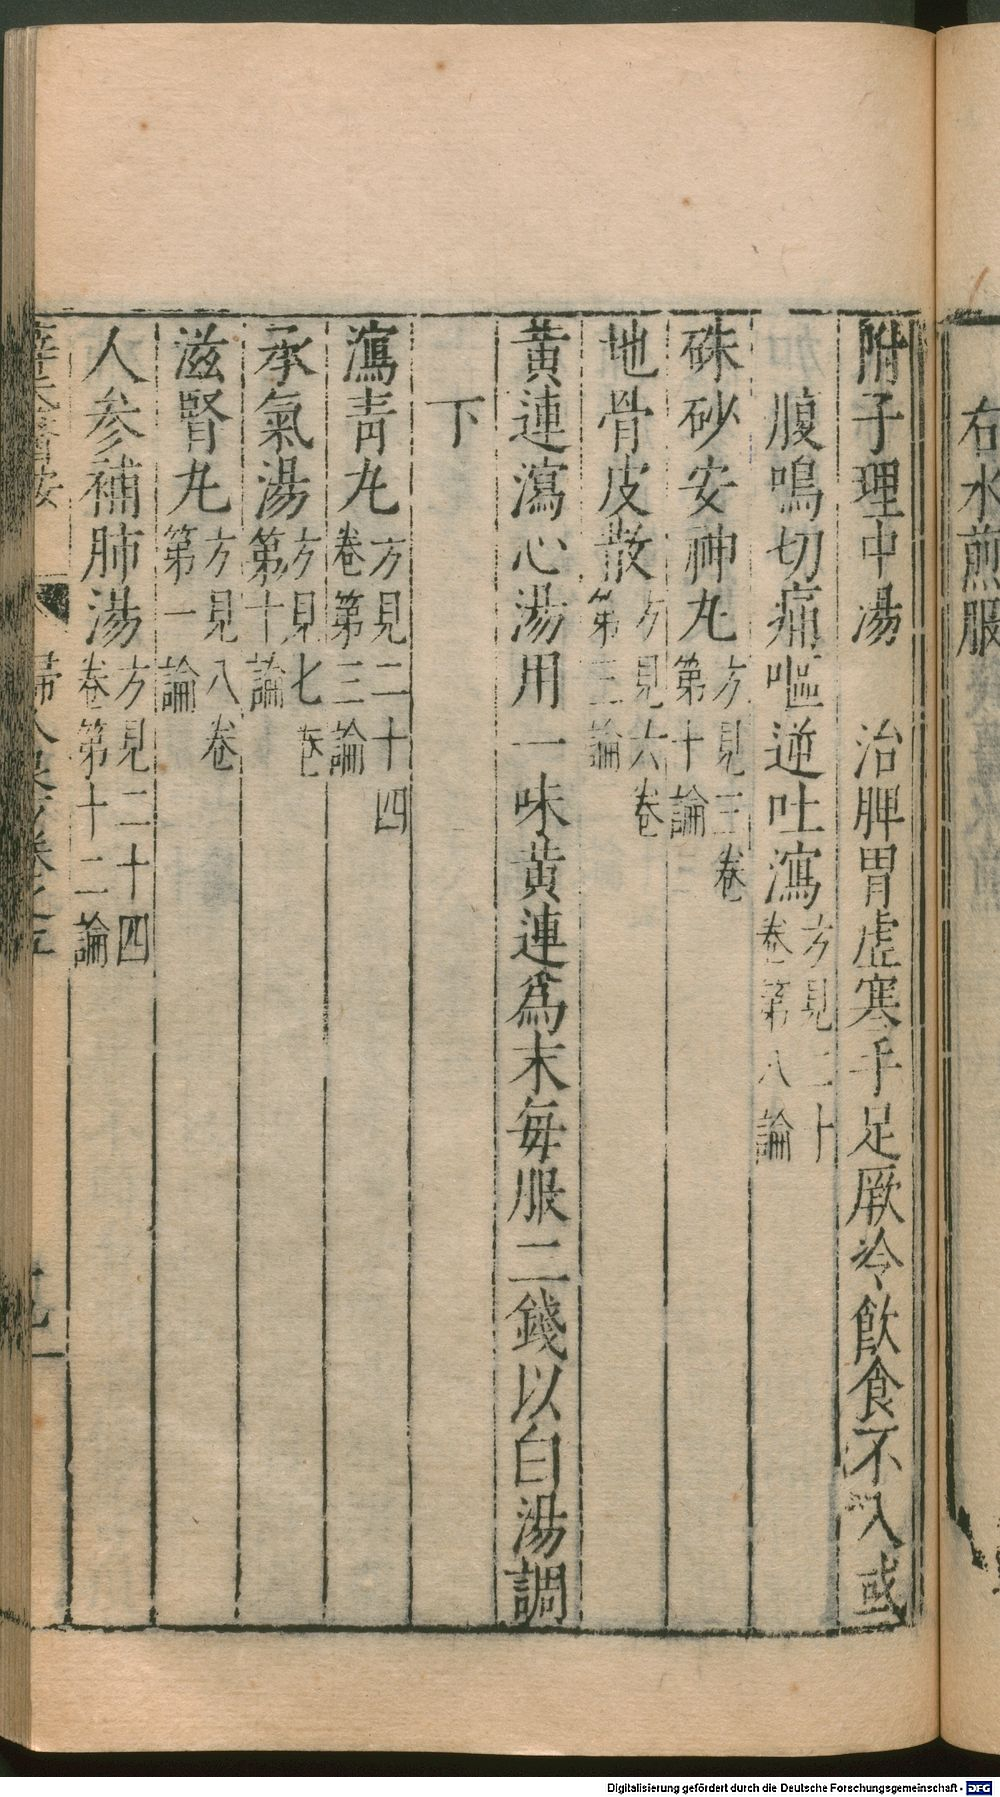 右水煎服
附子理中湯　治脾胃虛寒手足厥冷飲食不入或
腹鳴切痛嘔逆吐瀉方見二十卷第八論
硃砂安神丸方見三卷第十論
地骨皮散方見六卷第三論
黃連瀉心湯用一味黃連爲末每服二錢以白湯調
下
瀉青丸方見二十四卷第三論
承氣湯方見七卷第十論
滋腎丸方見八卷第一論
人參補肺湯方見二十四卷第十二論
婦人良方卷之五
Digitalisierung gefördert durch die Deutsche Forschungsgemeinschaft - DFG